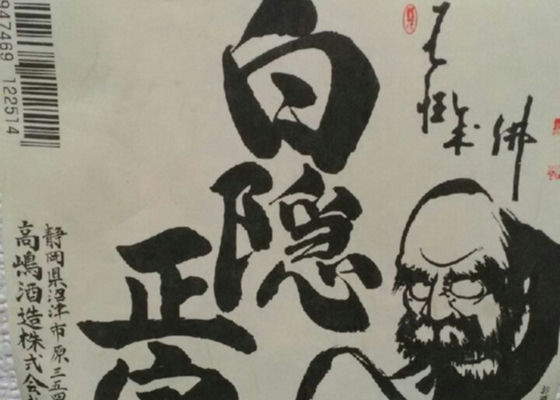 白隠
正宗
佛
静岡県沼津市原三五四
高嶋酒造株式会社
947469 122514